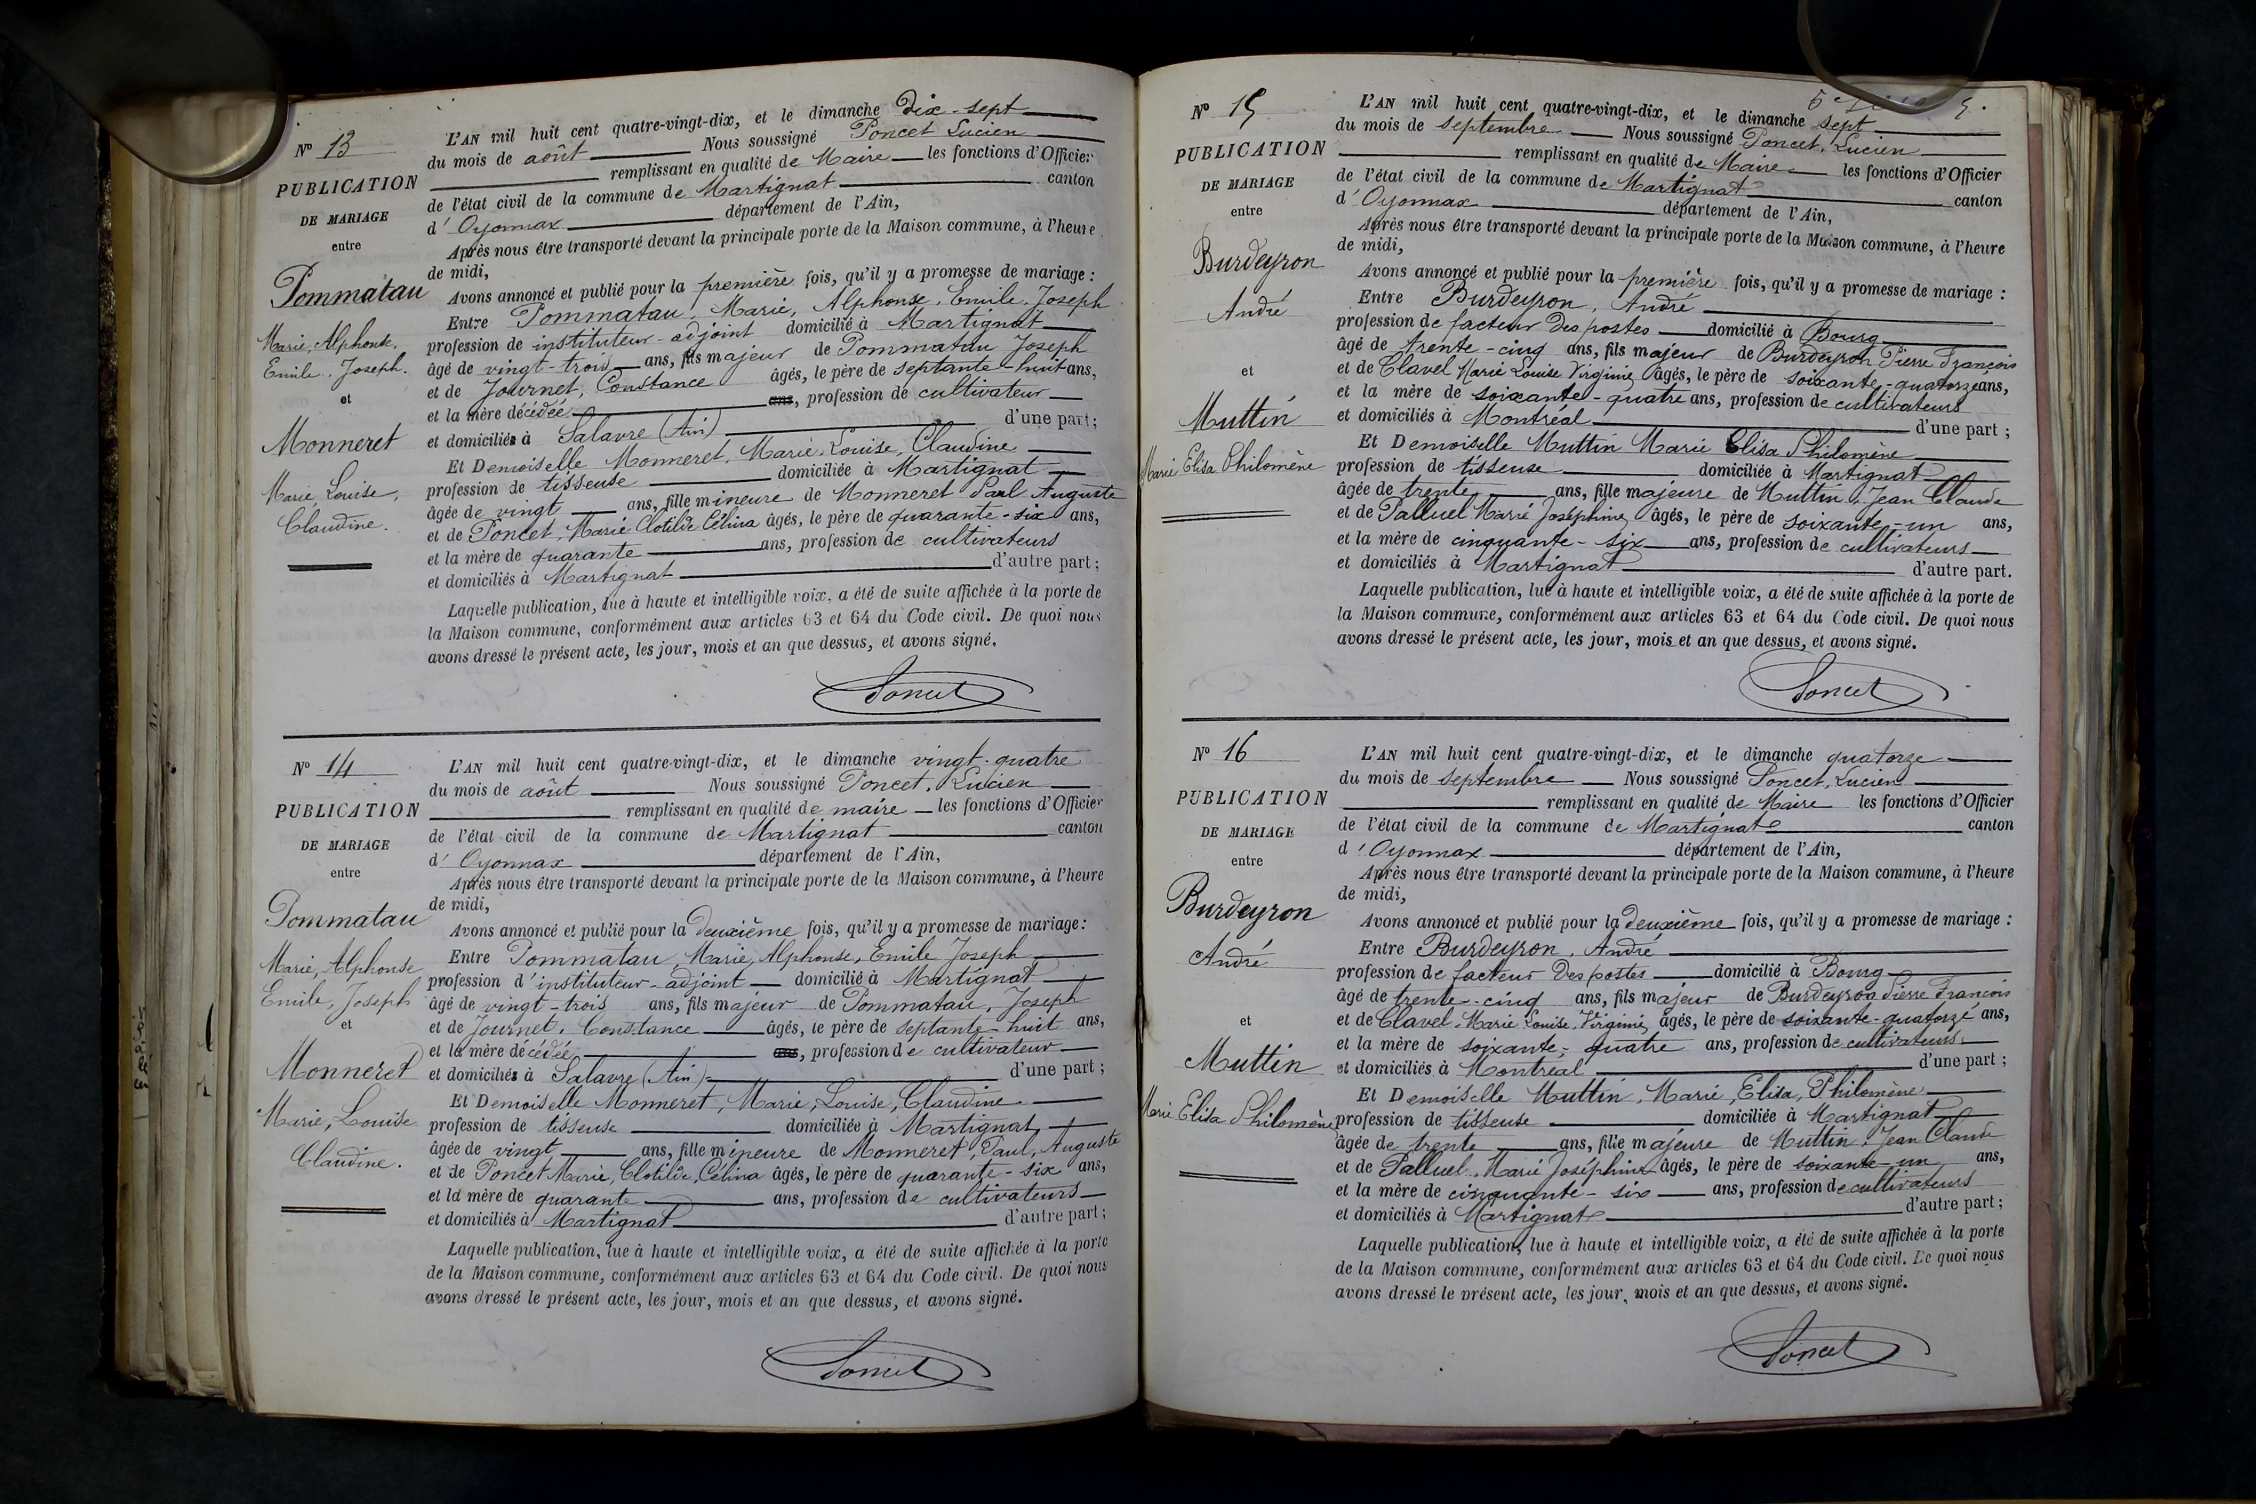 Nº 13
PUBLICATION
DE MARIAGE
entre
Pommatau
Marie, Alphonse,
Emile, Joseph.
et
Monneret
Marie, Louise,
Claudine.
L'AN mil huit cent quatre-vingt-dix, et le dimanche Dix-sept
du mois de août Nous soussigné Poncet Lucien
remplissant en qualité de Maire les fonctions d'Officier
de l'état civil de la commune de Martignat canton
d'Oyonnax département de l'Ain,
Après nous être transporté devant la principale porte de la Maison commune, à l'heure
de midi,
Avons annoncé et publié pour la première fois, qu'il y a promesse de mariage :
Entre Pommatau, Marie, Alphonse, Emile, Joseph
profession de instituteur-adjoint domicilié à Martignat
âgé de vingt-trois ans, fils majeur de Pommatau Joseph
et de Journet, Constance âgés, le père de septante-huit ans,
et la mère décédée ans, profession de cultivateur
et domiciliés à Salavre (Ain) d'une part;
Et Demoiselle Monneret, Marie, Louise, Claudine
profession de tisseuse domiciliée à Martignat
âgée de vingt ans, fille mineure de Monneret Paul Auguste
et de Poncet, Marie Clotilde Célina âgés, le père de quarante-six ans,
et la mère de quarante ans, profession de cultivateurs
et domiciliés à Martignat d'autre part;
Laquelle publication, lue à haute et intelligible voix, a été de suite affichée à la porte de
la Maison commune, conformément aux articles 63 et 64 du Code civil. De quoi nous
avons dressé le présent acte, les jour, mois et an que dessus, et avons signé.
Poncet
Nº 14
PUBLICATION
DE MARIAGE
entre
Pommatau
Marie, Alphonse
Emile, Joseph
et
Monneret
Marie, Louise
Claudine.
L'AN mil huit cent quatre-vingt-dix, et le dimanche vingt-quatre
du mois de août Nous soussigné Poncet, Lucien
remplissant en qualité de maire les fonctions d'Officier
de l'état civil de la commune de Martignat canton
d'Oyonnax département de l'Ain,
Après nous être transporté devant la principale porte de la Maison commune, à l'heure
de midi,
Avons annoncé et publié pour la Deuxième fois, qu'il y a promesse de mariage:
Entre Pommatau, Marie, Alphonse, Emile Joseph
profession d'instituteur-adjoint domicilié à Martignat
âgé de vingt-trois ans, fils majeur de Pommatau, Joseph
et de Journet, Constance âgés, le père de septante-huit ans,
et la mère décédée ans, profession de cultivateur
et domiciliés à Salavre (Ain) d'une part;
Et Demoiselle Monneret, Marie, Louise, Claudine
profession de tisseuse domiciliée à Martignat
âgée de vingt ans, fille mineure de Monneret, Paul, Auguste
et de Poncet Marie, Clotilde, Célina âgés, le père de quarante-six ans,
et la mère de quarante ans, profession de cultivateurs
et domiciliés à Martignat d'autre part;
Laquelle publication, lue à haute et intelligible voix, a été de suite affichée à la porte
de la Maison commune, conformément aux articles 63 et 64 du Code civil. De quoi nous
avons dressé le présent acte, les jour, mois et an que dessus, et avons signé.
Poncet
Nº 15
PUBLICATION
DE MARIAGE
entre
Burdeyron
André
et
Muttin
Marie Elisa Philomène
L'AN mil huit cent quatre-vingt-dix, et le dimanche sept
du mois de septembre Nous soussigné Poncet, Lucien
remplissant en qualité de Maire les fonctions d'Officier
de l'état civil de la commune de Martignat canton
d'Oyonnax département de l'Ain,
Après nous être transporté devant la principale porte de la Maison commune, à l'heure
de midi,
Avons annoncé et publié pour la première fois, qu'il y a promesse de mariage :
Entre Burdeyron, André
profession de facteur Des postes domicilié à Bourg
âgé de trente-cinq ans, fils majeur de Burdeyron Pierre François
et de Clavel Marie Louise Virginie âgés, le père de soixante-quatorze ans,
et la mère de soixante-quatre ans, profession de cultivateurs
et domiciliés à Montréal d'une part ;
Et Demoiselle Muttin Marie Elisa Philomène
profession de tisseuse domiciliée à Martignat
âgée de trente ans, fille majeure de Muttin, Jean Claude
et de Palluel Marie Joséphine âgés, le père de soixante-un ans,
et la mère de cinquante-six ans, profession de cultivateurs
et domiciliés à Martignat d'autre part.
Laquelle publication, lue à haute et intelligible voix, a été de suite affichée à la porte de
la Maison commune, conformément aux articles 63 et 64 du Code civil. De quoi nous
avons dressé le présent acte, les jour, mois et an que dessus, et avons signé.
Poncet
Nº 16
PUBLICATION
DE MARIAGE
entre
Burdeyron
André
et
Muttin
Marie Elisa Philomène
L'AN mil huit cent quatre-vingt-dix, et le dimanche quatorze
du mois de septembre Nous soussigné Poncet, Lucien
remplissant en qualité de Maire les fonctions d'Officier
de l'état civil de la commune de Martignat canton
d'Oyonnax département de l'Ain,
Après nous être transporté devant la principale porte de la Maison commune, à l'heure
de midi,
Avons annoncé et publié pour la deuxième fois, qu'il y a promesse de mariage :
Entre Burdeyron, André
profession de facteur Des postes domicilié à Bourg
âgé de trente-cinq ans, fils majeur de Burdeyron Pierre François
et de Clavel, Marie Louise, Virginie âgés, le père de soixante-quatorze ans,
et la mère de soixante-quatre ans, profession de cultivateurs
et domiciliés à Montréal d'une part ;
Et Demoiselle Muttin, Marie, Elisa, Philomène
profession de tisseuse domiciliée à Martignat
âgée de trente ans, fille majeure de Muttin, Jean Claude
et de Palluel, Marie Joséphine âgés, le père de soixante-un ans,
et la mère de cinquante-six ans, profession de cultivateurs
et domiciliés à Martignat d'autre part;
Laquelle publication, lue à haute et intelligible voix, a été de suite affichée à la porte
de la Maison commune, conformément aux articles 63 et 64 du Code civil. De quoi nous
avons dressé le présent acte, les jour, mois et an que dessus, et avons signé.
Poncet